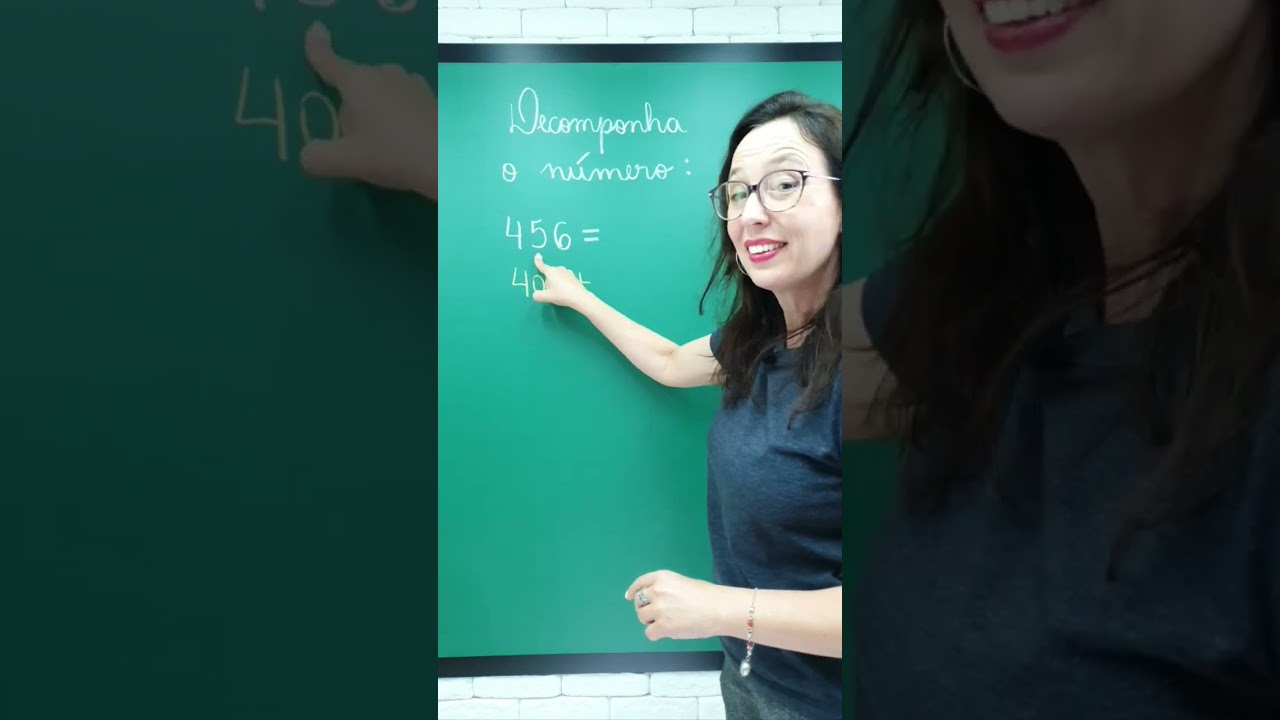 Decomponha
o número:
456 =
400 +